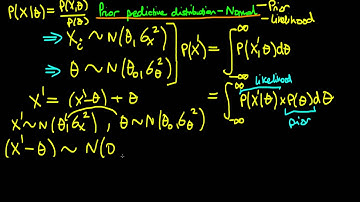 P(X|θ) = P(X,θ)/P(θ) Prior predictive distribution - Normal - Prior - Likelihood
⇒ X_i ~ N(θ, σ_x²)
⇒ θ ~ N(θ_0, σ_θ²)
P(X') = ∫_{-∞}^{∞} P(X',θ)dθ
X' = (X'-θ) + θ
= ∫_{-∞}^{∞} P(X'|θ) × P(θ) dθ
likelihood
prior
X' ~ N(θ, σ_x²), θ ~ N(θ_0, σ_θ²)
(X'-θ) ~ N(0,